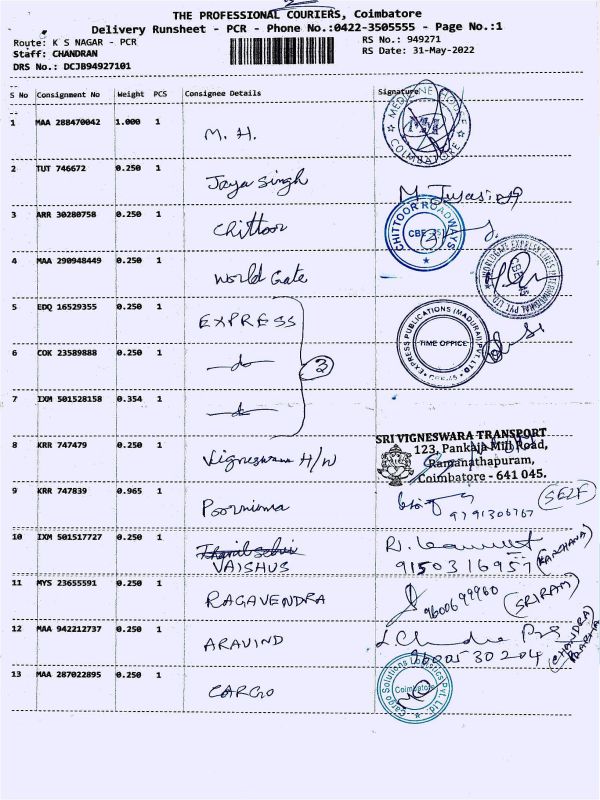 THE PROFESSIONAL COURIERS, Coimbatore
Delivery Runsheet - PCR - Phone No.:0422-3505555 - Page No.:1
Route: K S NAGAR - PCR RS No.: 949271
Staff: CHANDRAN RS Date: 31-May-2022
DRS No.: DCJB94927101
S No Consignment No Weight PCS Consignee Details Signature
1 MAA 288470042 1.000 1 M. H. MEDICINE HOUSE MM COIMBATORE
2 TUT 746672 0.250 1 Jaya Singh
3 ARR 30280758 0.250 1 Chittoor CHITTOOR ROADWAYS CBE
4 MAA 290948449 0.250 1 World Gate WORLDGATE EXPRESS LINES INTERNATIONAL PVT. LTD.
5 EDQ 16529355 0.250 1 EXPRESS EXPRESS PUBLICATIONS (MADURAI) PVT. LTD TIME OFFICE
6 COK 23589888 0.250 1 3
7 IXM 501528158 0.354 1
8 KRR 747479 0.250 1 Vigneswara H/W SRI VIGNESWARA TRANSPORT
123, Pankaja Mill Road,
Ramanathapuram,
Coimbatore - 641 045.
9 KRR 747839 0.965 1 Poornima 9791306767 SELF
10 IXM 501517727 0.250 1 VAISHUS 9150316957
11 MYS 23655591 0.250 1 RAGAVENDRA 9600699960 SRIRAM
12 MAA 942212737 0.250 1 ARAVIND 9600530204 CHANDRA PRABHA
13 MAA 287022895 0.250 1 CARGO Cargo Solutions Logistics Pvt. Ltd. Coimbatore